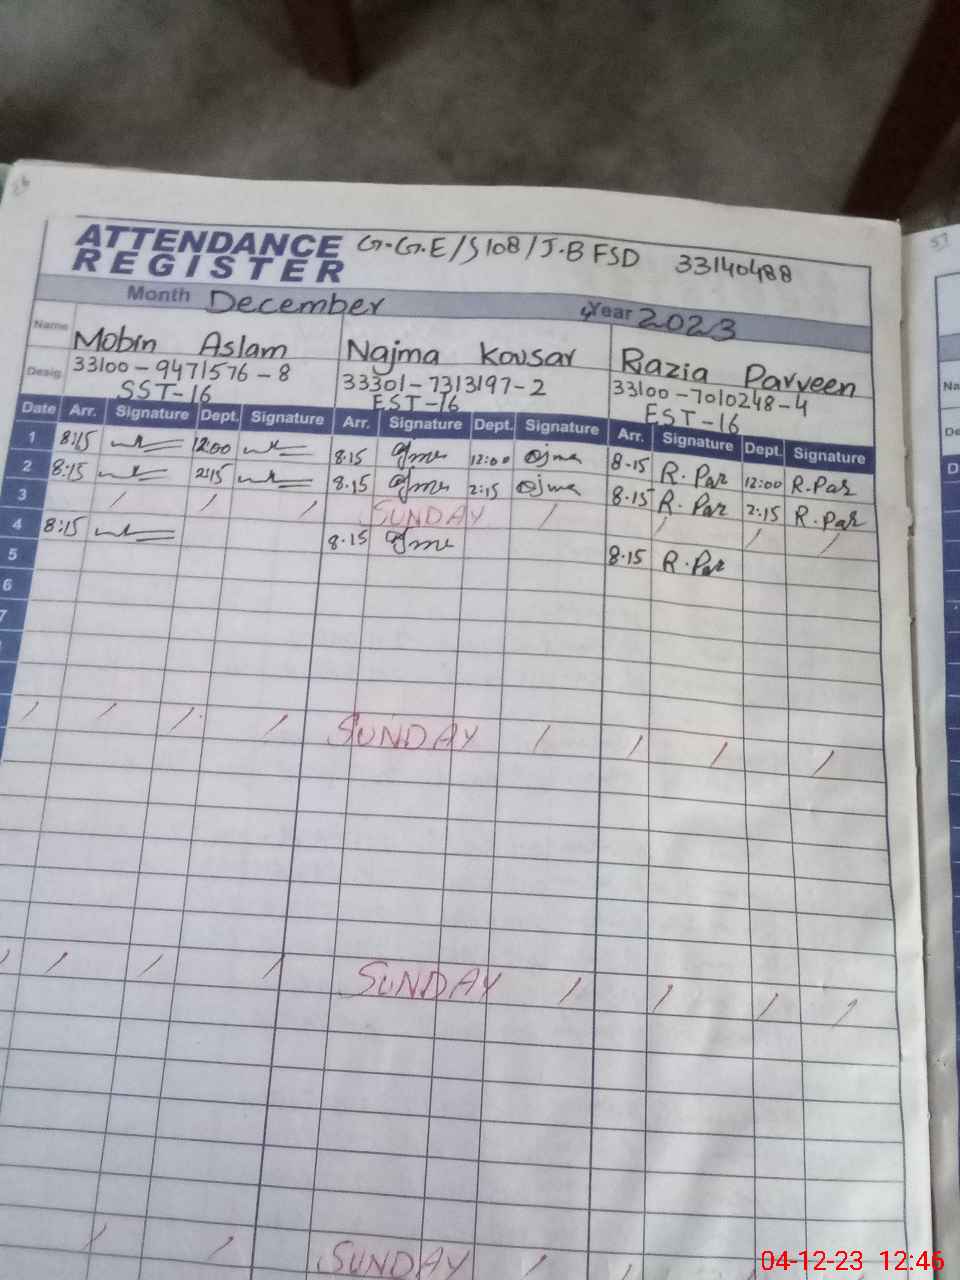 ATTENDANCE REGISTER G.G.E/S 108/J.B FSD 33140488
Month December Year 2023
Name Mobin Aslam Najma Kousar Razia Parveen
Desig. 33100-9471576-8 33301-7313197-2 33100-7010248-4
SST-16 EST-16 EST-16
Date Arr. Signature Dept. Signature Arr. Signature Dept. Signature Arr. Signature Dept. Signature
1 8:15 12:00 8:15 12:00 8-15 R.Par 12:00 R.Par
2 8:15 2:15 8.15 2:15 8-15 R.Par 2:15 R.Par
3 SUNDAY
4 8:15 8.15 8-15 R.Par
5
6
7
SUNDAY
SUNDAY
SUNDAY
57
04-12-23 12:46